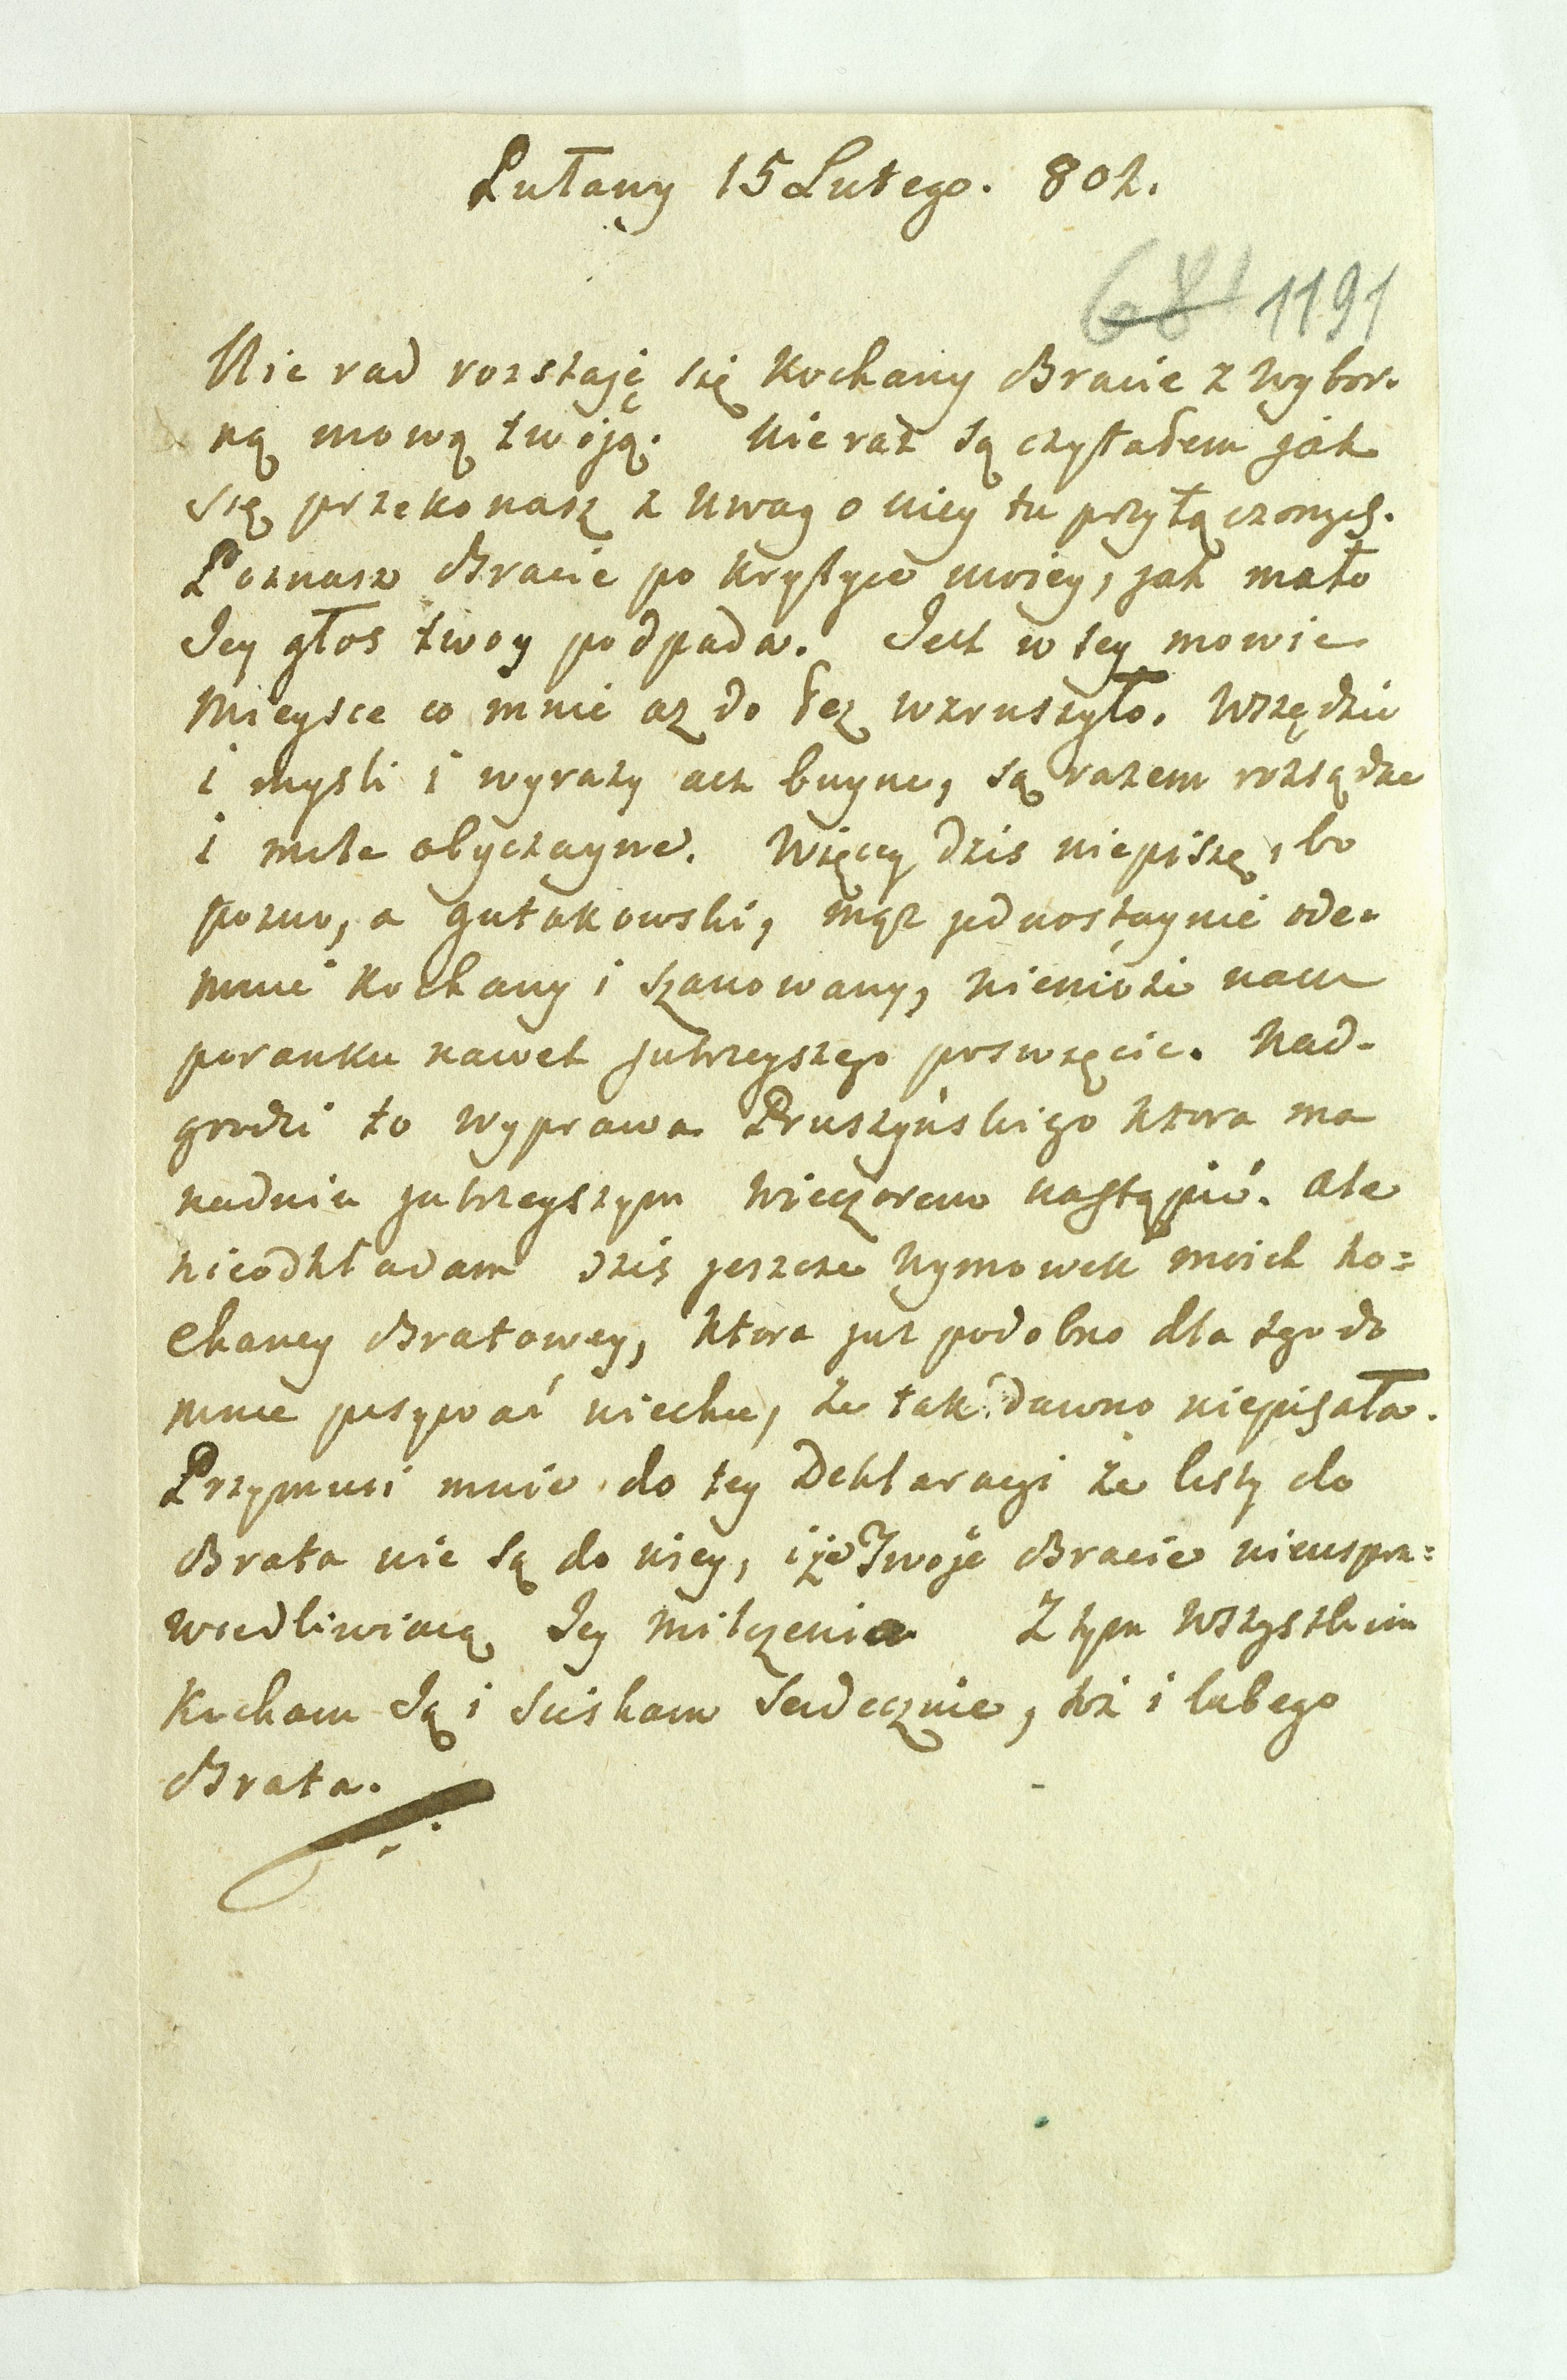 Puławy 15 Lutego. 802.
681 1191
Nie rad rozstaję się Kochany Bracie z wybor-
ną mową twoją. Nie raz ią czytałem jak
się przekonasz z uwag o niey tu przyłączonych.
Poznasz Bracie po krytyce moiey, jak mało
Jey głos twoy podpada. Jest w tey mowie
Mieysce co mnie aż do łez wzruszyło. Wszędzie
i mysli i wyrazy acz buyne, są razem rozsądne
i miłe obyczayne. Więcey dzis niepiszę, bo
pozno, a Gutakowski, mąż jednostaynie ode-
mnie kochany i szanowany, niemoże nam
poranku nawet jutrzeyszego poswięcic. Nad-
grodzi to wyprawa Pruszyńskiego ktora ma
nadniu jutrzeyszym wieczorem nastąpić. Ale
nieodkładam dziś jeszcze wymowek moich ko=
chaney Bratowey, ktora już podobno dla tego do
mnie pisywać niechce, że tak dawno niepisała.
Przymusi mnie do tey Deklaracyi że listy do
Brata nie są do niey, i że Twoje Bracie nieuspra=
wiedliwiaią Jey milczenia Z tym wszystkim
Kocham Ją i sciskam serdecznie, toż i lubego
Brata.